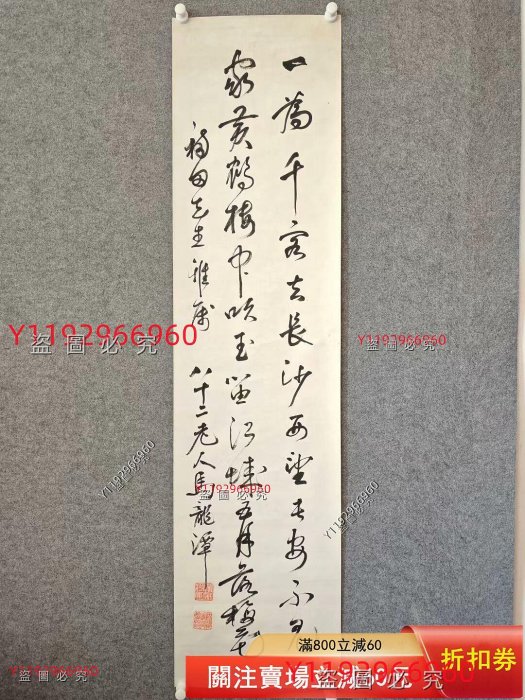 一為千客去長沙西望長安不見
家黃鶴樓中吹玉笛江城五月落梅
福田先生雅屬
八十二老人馬龍潭
Y1192966960
盜圖必究
Y1192966960
Y1192966960
Y1192966960
盜圖必究
滿800立減60
關注賣場立減60元
折扣券
盜圖必究
盜圖必究